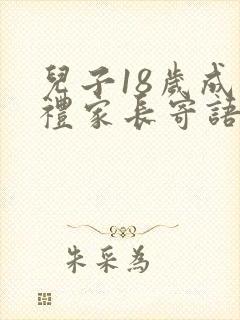 兒子18歲成
禮家長寄語
朱采為